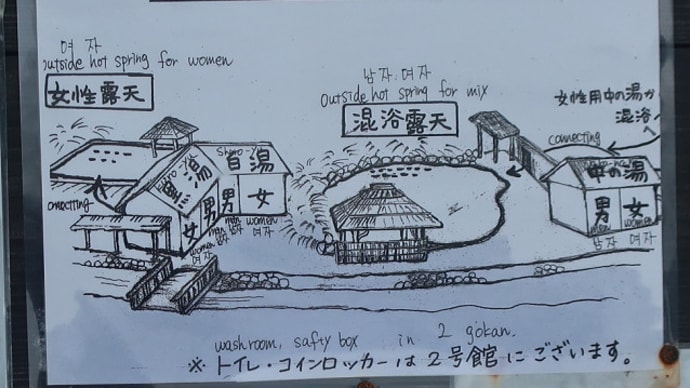 여자
outside hot spring for women
女性露天
남자, 여자
Outside hot spring for mix
混浴露天
女性用中の湯か
混浴へ
connecting
Shiro-Y
白湯
黒湯
onnecting
女
男
男
女
women
여자
men
남자
men
남자
women
여자
中の湯
男
女
men
women
남자
여자
washroom, safty box in 2 gokan.
※トイレ・コインロッカーは2号館にございます。